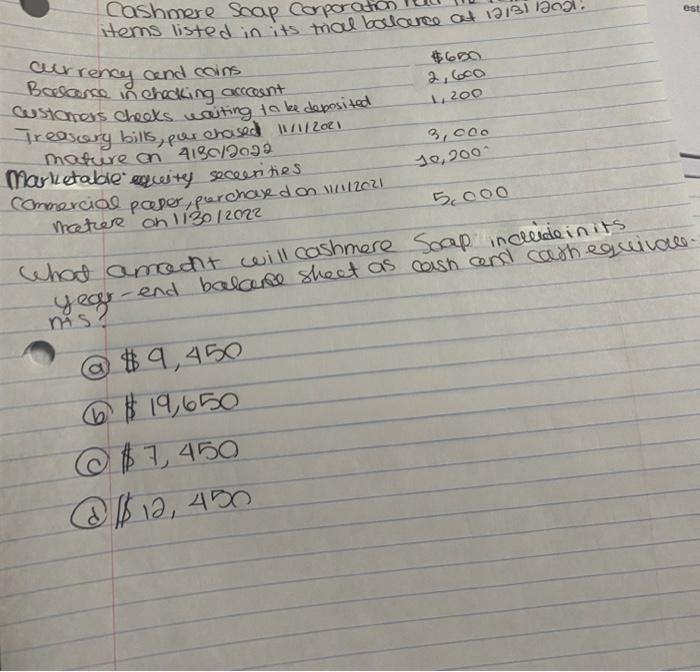 Cashmere Soap Corporation had the
items listed in its trial balance at 12/31/2021:
currency and coins $650
Balance in checking account 2,600
Customers checks waiting to be deposited 1,200
Treasury bills, purchased 11/1/2021
mature on 4/30/2022 3,000
Marketable equity securities 10,200
Commercial paper, purchased on 11/1/2021
mature on 1/30/2022 5,000
What amount will cashmere Soap include in its
year-end balance sheet as cash and cash equivale-
nts?
a $9,450
b $19,650
c $7,450
d $12,450
est